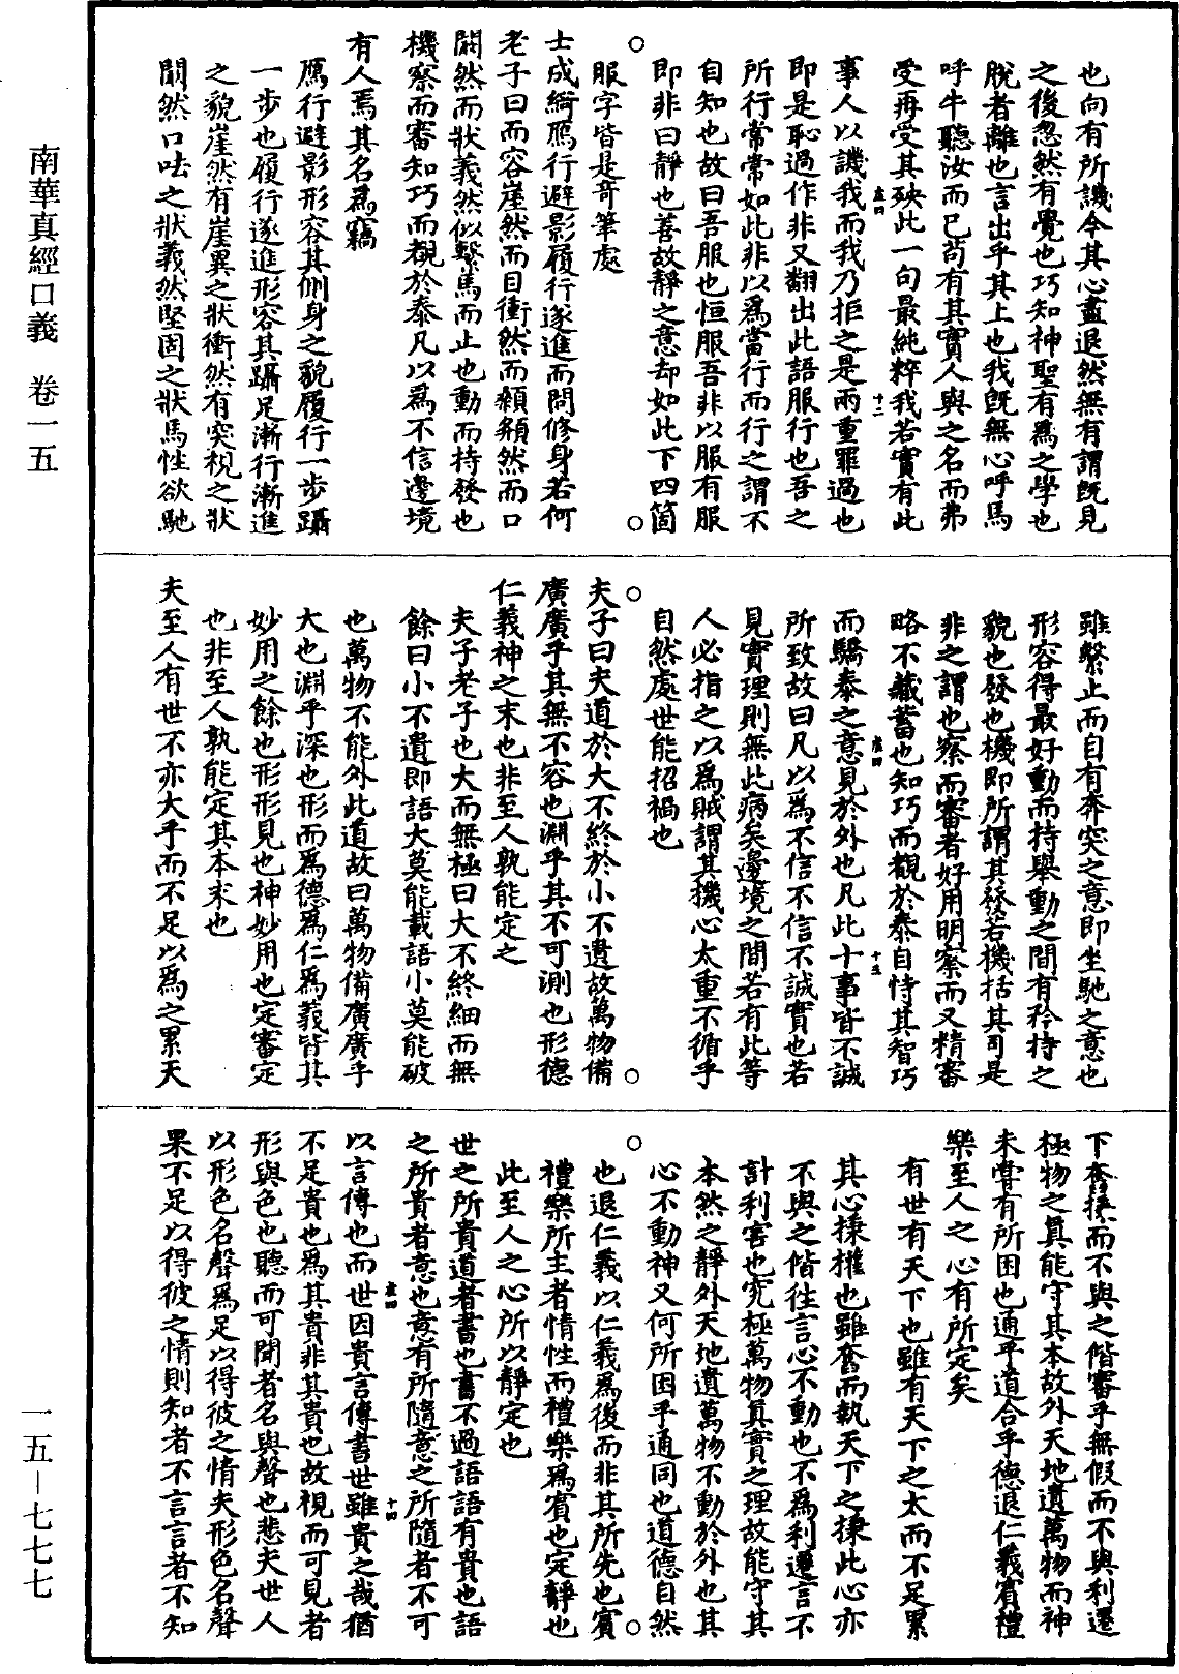 南華真經口義　卷一五
一五—七七七
也向有所譏今其心盡退然無有謂既見
之後忽然有覺也巧知神聖有為之學也
脫者離也言出乎其上也我既無心呼馬
呼牛聽汝而已苟有其實人與之名而弗
受再受其殃此一句最純粹我若實有此
事人以譏我而我乃拒之是兩重罪過也
即是恥過作非又翻出此語服行也吾之
所行常常如此非以為當行而行之謂不
自知也故曰吾服也恒服吾非以服有服
即非曰靜也善故靜之意却如此下四箇
服字皆是奇筆處
士成綺鴈行避影履行遂進而問修身若何
老子曰而容崖然而目衝然而顙頯然而口
闞然而狀義然似繫馬而止也動而持發也
機察而審知巧而覩於泰凡以為不信邊境
有人焉其名為竊
鴈行避影形容其側身之貌履行一步躡
一步也履行遂進形容其躡足漸行漸進
之貌崖然有崖異之狀衝然有突視之狀
闞然口呿之狀義然堅固之狀馬性欲馳
雖繫止而自有奔突之意即坐馳之意也
形容得最好動而持舉動之間有矜持之
貌也發也機即所謂其發若機括其司是
非之謂也察而審者好用明察而又精審
略不藏蓄也知巧而觀於泰自恃其智巧
而驕泰之意見於外也凡此十事皆不誠
所致故曰凡以為不信不信不誠實也若
見實理則無此病矣邊境之間若有此等
人必指之以為賊謂其機心太重不循乎
自然處世能招禍也
夫子曰夫道於大不終於小不遺故萬物備
廣廣乎其無不容也淵乎其不可測也形德
仁義神之末也非至人孰能定之
夫子老子也大而無極曰大不終細而無
餘曰小不遺即語大莫能載語小莫能破
也萬物不能外此道故曰萬物備廣廣乎
大也淵乎深也形而為德為仁為義皆其
妙用之餘也形形見也神妙用也定審定
也非至人孰能定其本末也
夫至人有世不亦大乎而不足以為之累天
下奮揍而不與之偕審乎無假而不與利遷
極物之真能守其本故外天地遺萬物而神
未嘗有所困也通乎道合乎德退仁義賓禮
樂至人之心有所定矣
有世有天下也雖有天下之大而不足累
其心揍權也雖奮而執天下之揍此心亦
不與之偕往言心不動也不為利遷言不
計利害也究極萬物真實之理故能守其
本然之靜外天地遺萬物不動於外也其
心不動神又何所困乎通同也道德自然
也退仁義以仁義為後而非其所先也賓
禮樂所主者情性而禮樂為賓也定靜也
此至人之心所以靜定也
世之所貴道者書也書不過語語有貴也語
之所貴者意也意有所隨意之所隨者不可
以言傳也而世因貴言傳書世雖貴之哉猶
不足貴也為其貴非其貴也故視而可見者
形與色也聽而可聞者名與聲也悲夫世人
以形色名聲為足以得彼之情夫形色名聲
果不足以得彼之情則知者不言言者不知